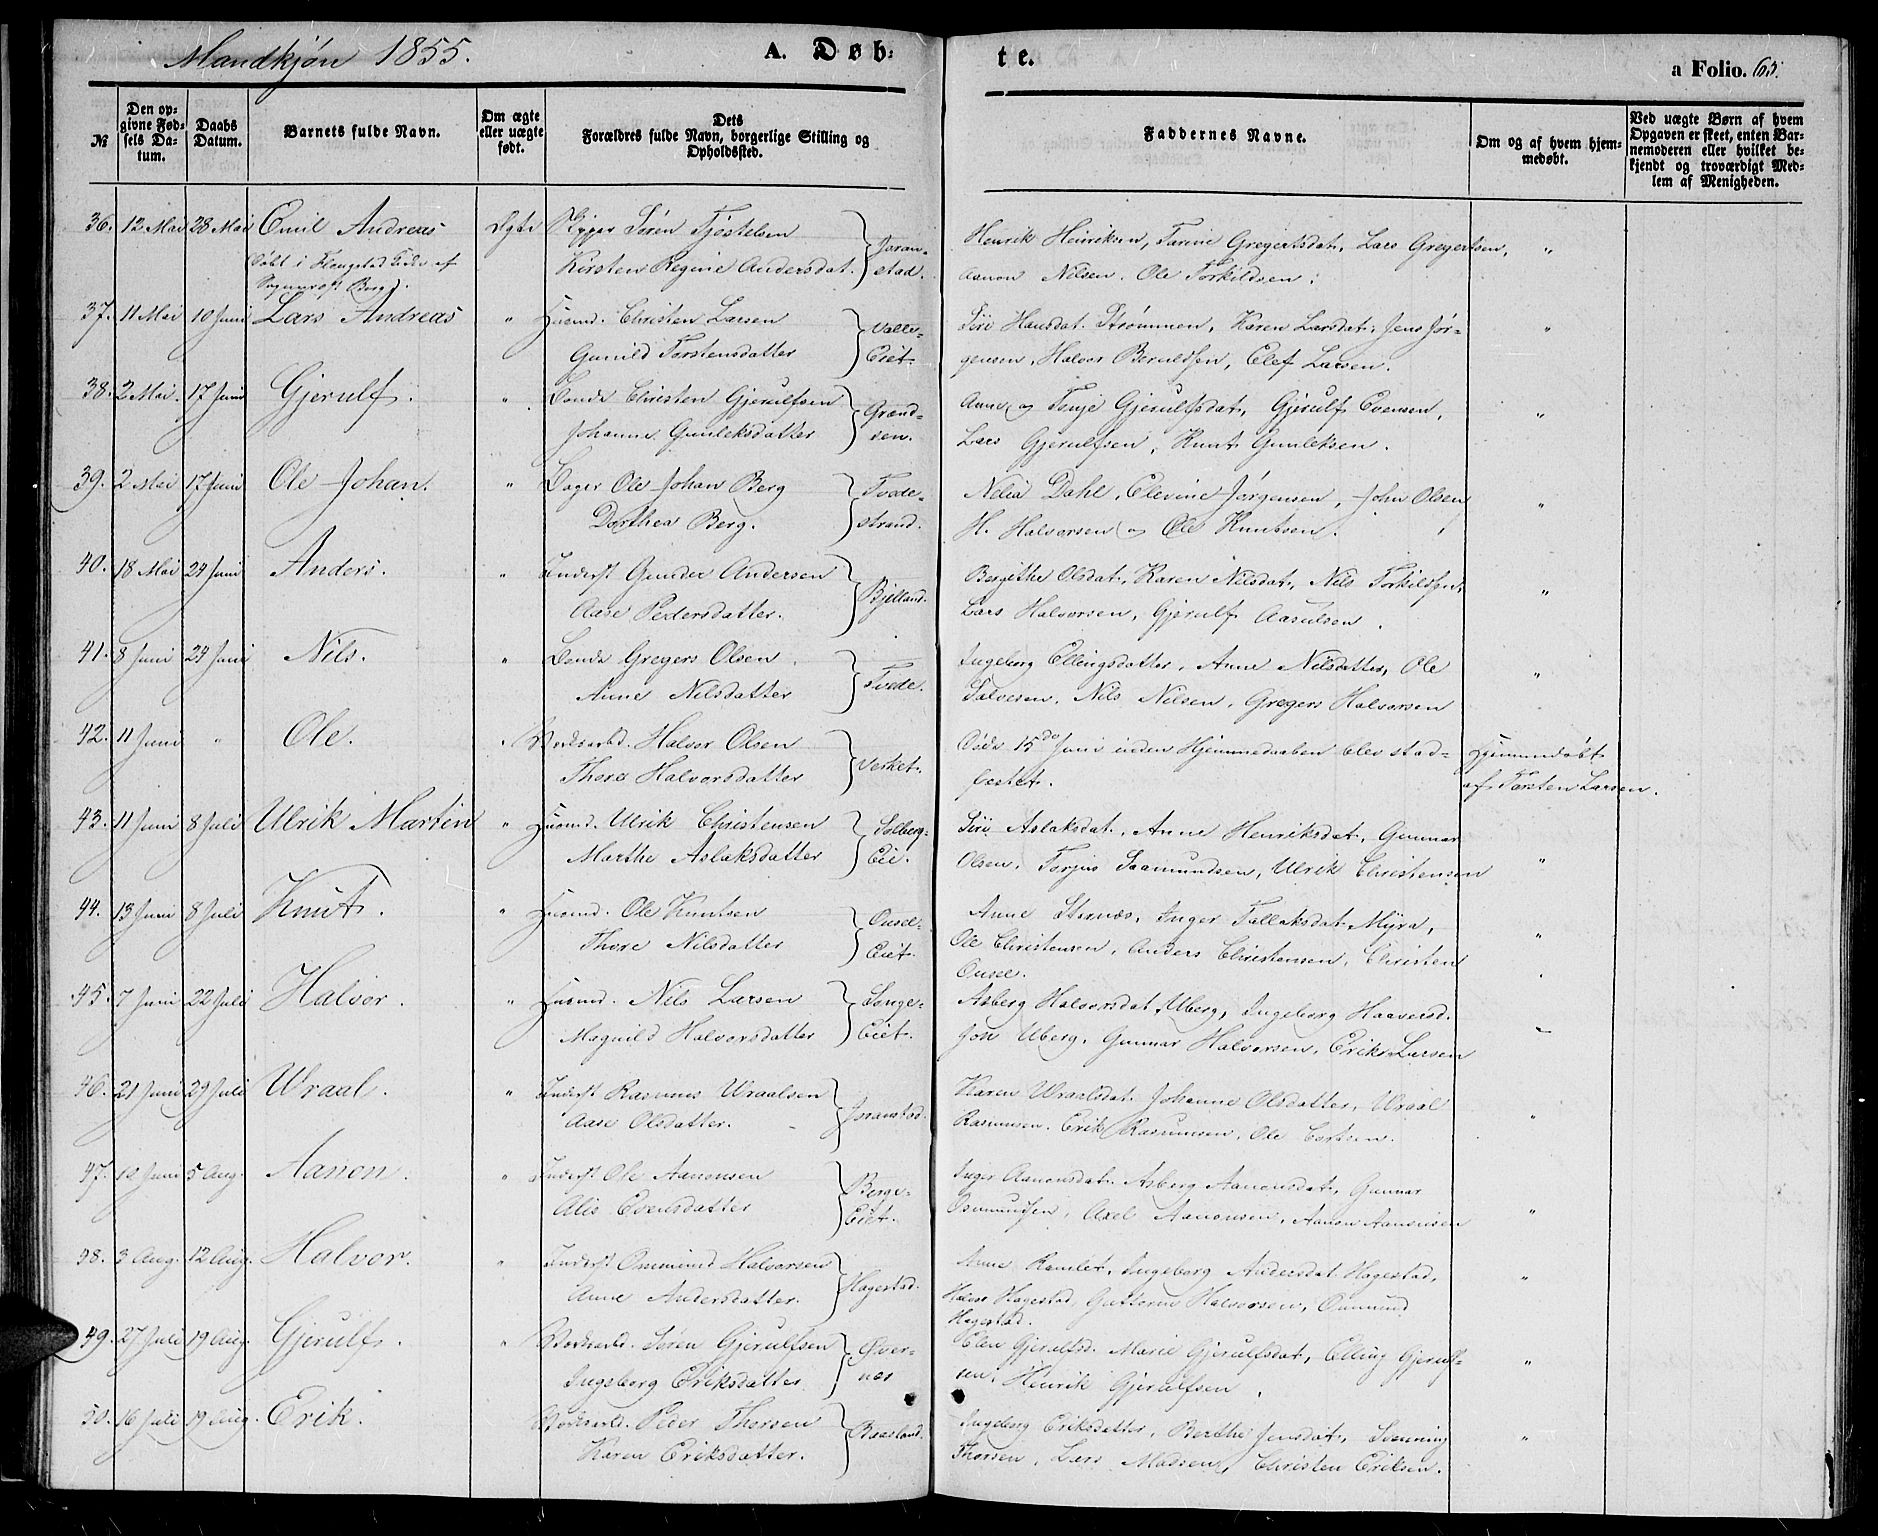 Mandkjøn 1855.
A. Døbte.
a Folio. 65.
№
Den opgivne Fødsels Datum.
Daabs Datum.
Barnets fulde Navn.
Om ægte eller uægte født.
Dets Forældres fulde Navn, borgerlige Stilling og Opholdssted.
Faddernes Navne.
Om og af hvem hjemmedøbt.
Ved uægte Børn af hvem Opgaven er skeet, enten Barnemoderen eller hvilket bekjendt og troværdigt Medlem af Menigheden.
36. 12 Mai 28 Mai Emil Andreas Ægte Skipper Sören Tjöstelsen Joran- Henrik Henriksen, Tarine Gregertsdat, Lars Gregertsen, "
Döbt i Flougstad Kirke af Kirsten Regine Andersdat. stad. Aanon Nilsen. Ole Torkildsen.
Sognepræst Berg.
37. 11 Mai 10 Juni Lars Andreas " Huusmd. Christen Larsen Valle- Siri Hansdat. Strømmen, Karen Larsdat, Jens Jør- "
Gunild Torstensdatter Eiet. gensen, Halvor Beruldsen, Elef Larsen.
38. 2 Mai. 17 Juni Gjerulf. " Bonde Christen Gjerulfsen Grønd- Anne og Tonje Gjerulfsdat, Gjerulf Evensen, "
Johanne Gunleksdatter sen. Lars Gjerulfsen, Knut Gunleksen.
39. 2 Mai 17 Juni Ole Johan. " Bager Ole Johan Berg Tvede- Nelia Dahl, Elevine Jørgensen, John Olsen "
Dorthea Berg. strand. H. Halvorsen og Ole Knutsen.
40. 18 Mai 24 Juni Anders. " Inderst Gunder Andersen Bjelland. Bergithe Olsdat, Karen Nilsdat, Nils Torkildsen, "
Aase Pedersdatter. Lars Halvorsen, Gjerulf Aasulsen.
41. 8 Juni 24 Juni Nils. " Bonde Gregers Olsen Tvede. Ingeborg Ellingsdatter, Anne Nilsdatter, Ole "
Anne Nilsdatter Talvesen, Nils Nilsen, Gregers Halvorsen
42. 11 Juni " Ole. " Værksarbd. Halvor Olsen Verket. Døde 15de Juni inden Hjemmedaaben blev stad- Hjemmedøbt
Thora Halvorsdatter fæstet. af Torsten Larsen.
43. 11 Juni 8 Juli Ulrik Martin " Huusmd. Ulrik Christensen Solberg- Siri Aslaksdat, Anne Henriksdat, Gunnar "
Marthe Aslaksdatter Eie. Olsen, Torjus Saamundsen, Ulrik Christensen
44. 13 Juni 8 Juli Knut. " Huusmd. Ole Knutsen Ousel- Anne Sternæs, Inger Tallaksdat. Myra, "
Thore Nilsdatter Eiet. Ole Christensen, Anders Christensen, Christen
Ousel.
45. 7 Juni 22 Juli Halvor. " Huusmd. Nils Larsen Songe- Asberg Halvorsdat. Uberg, Ingeborg Haaversd. "
Magnild Halvorsdatter Eiet. Jon Uberg, Gunnar Halvorsen, Erik Larsen
46. 21 Juni 29 Juli Wraal. " Inderst Rasmus Wraalsen Joranstad. Karen Wraalsdat. Johanne Olsdatter, Wraal "
Aase Olsdatter. Rasmusen. Erik Rasmusen, Ole
47. 10 Juni 5 Aug. Aanon. " Inderst Ole Aanonsen Berge- Inger Aanonsdat. Asberg Aanonsdat, Gunnar "
Alis Evensdatter Eiet. Osmundsen, Axel Aanonsen, Aanon Aanonsen
48. 3 Aug. 12 Aug. Halvor. " Inderst Ommund Halvorsen Hagestad. Anne Ramlet, Ingeborg Andersdat. Hagestad, "
Anne Andersdatter. Halvor Hagestad, Guttorm Halvorsen, Ommund
Hagestad.
49. 27 Juli 19 Aug. Gjerulf. " Værksarbd. Sören Gjerulfsen Øver- Elen Gjerulfsd. Marie Gjerulfsdat, Elling Gjerulf- "
Ingeborg Eriksdatter næs sen, Henrik Gjerulfsen.
50. 16 Juli 19 Aug. Erik. Værksarbd. Peder Thorsen Baasland. Ingeborg Eriksdatter, Berthe Jensdat, Svenning "
Karen Eriksdatter. Thorsen, Lars Madsen, Christen Eriksen.